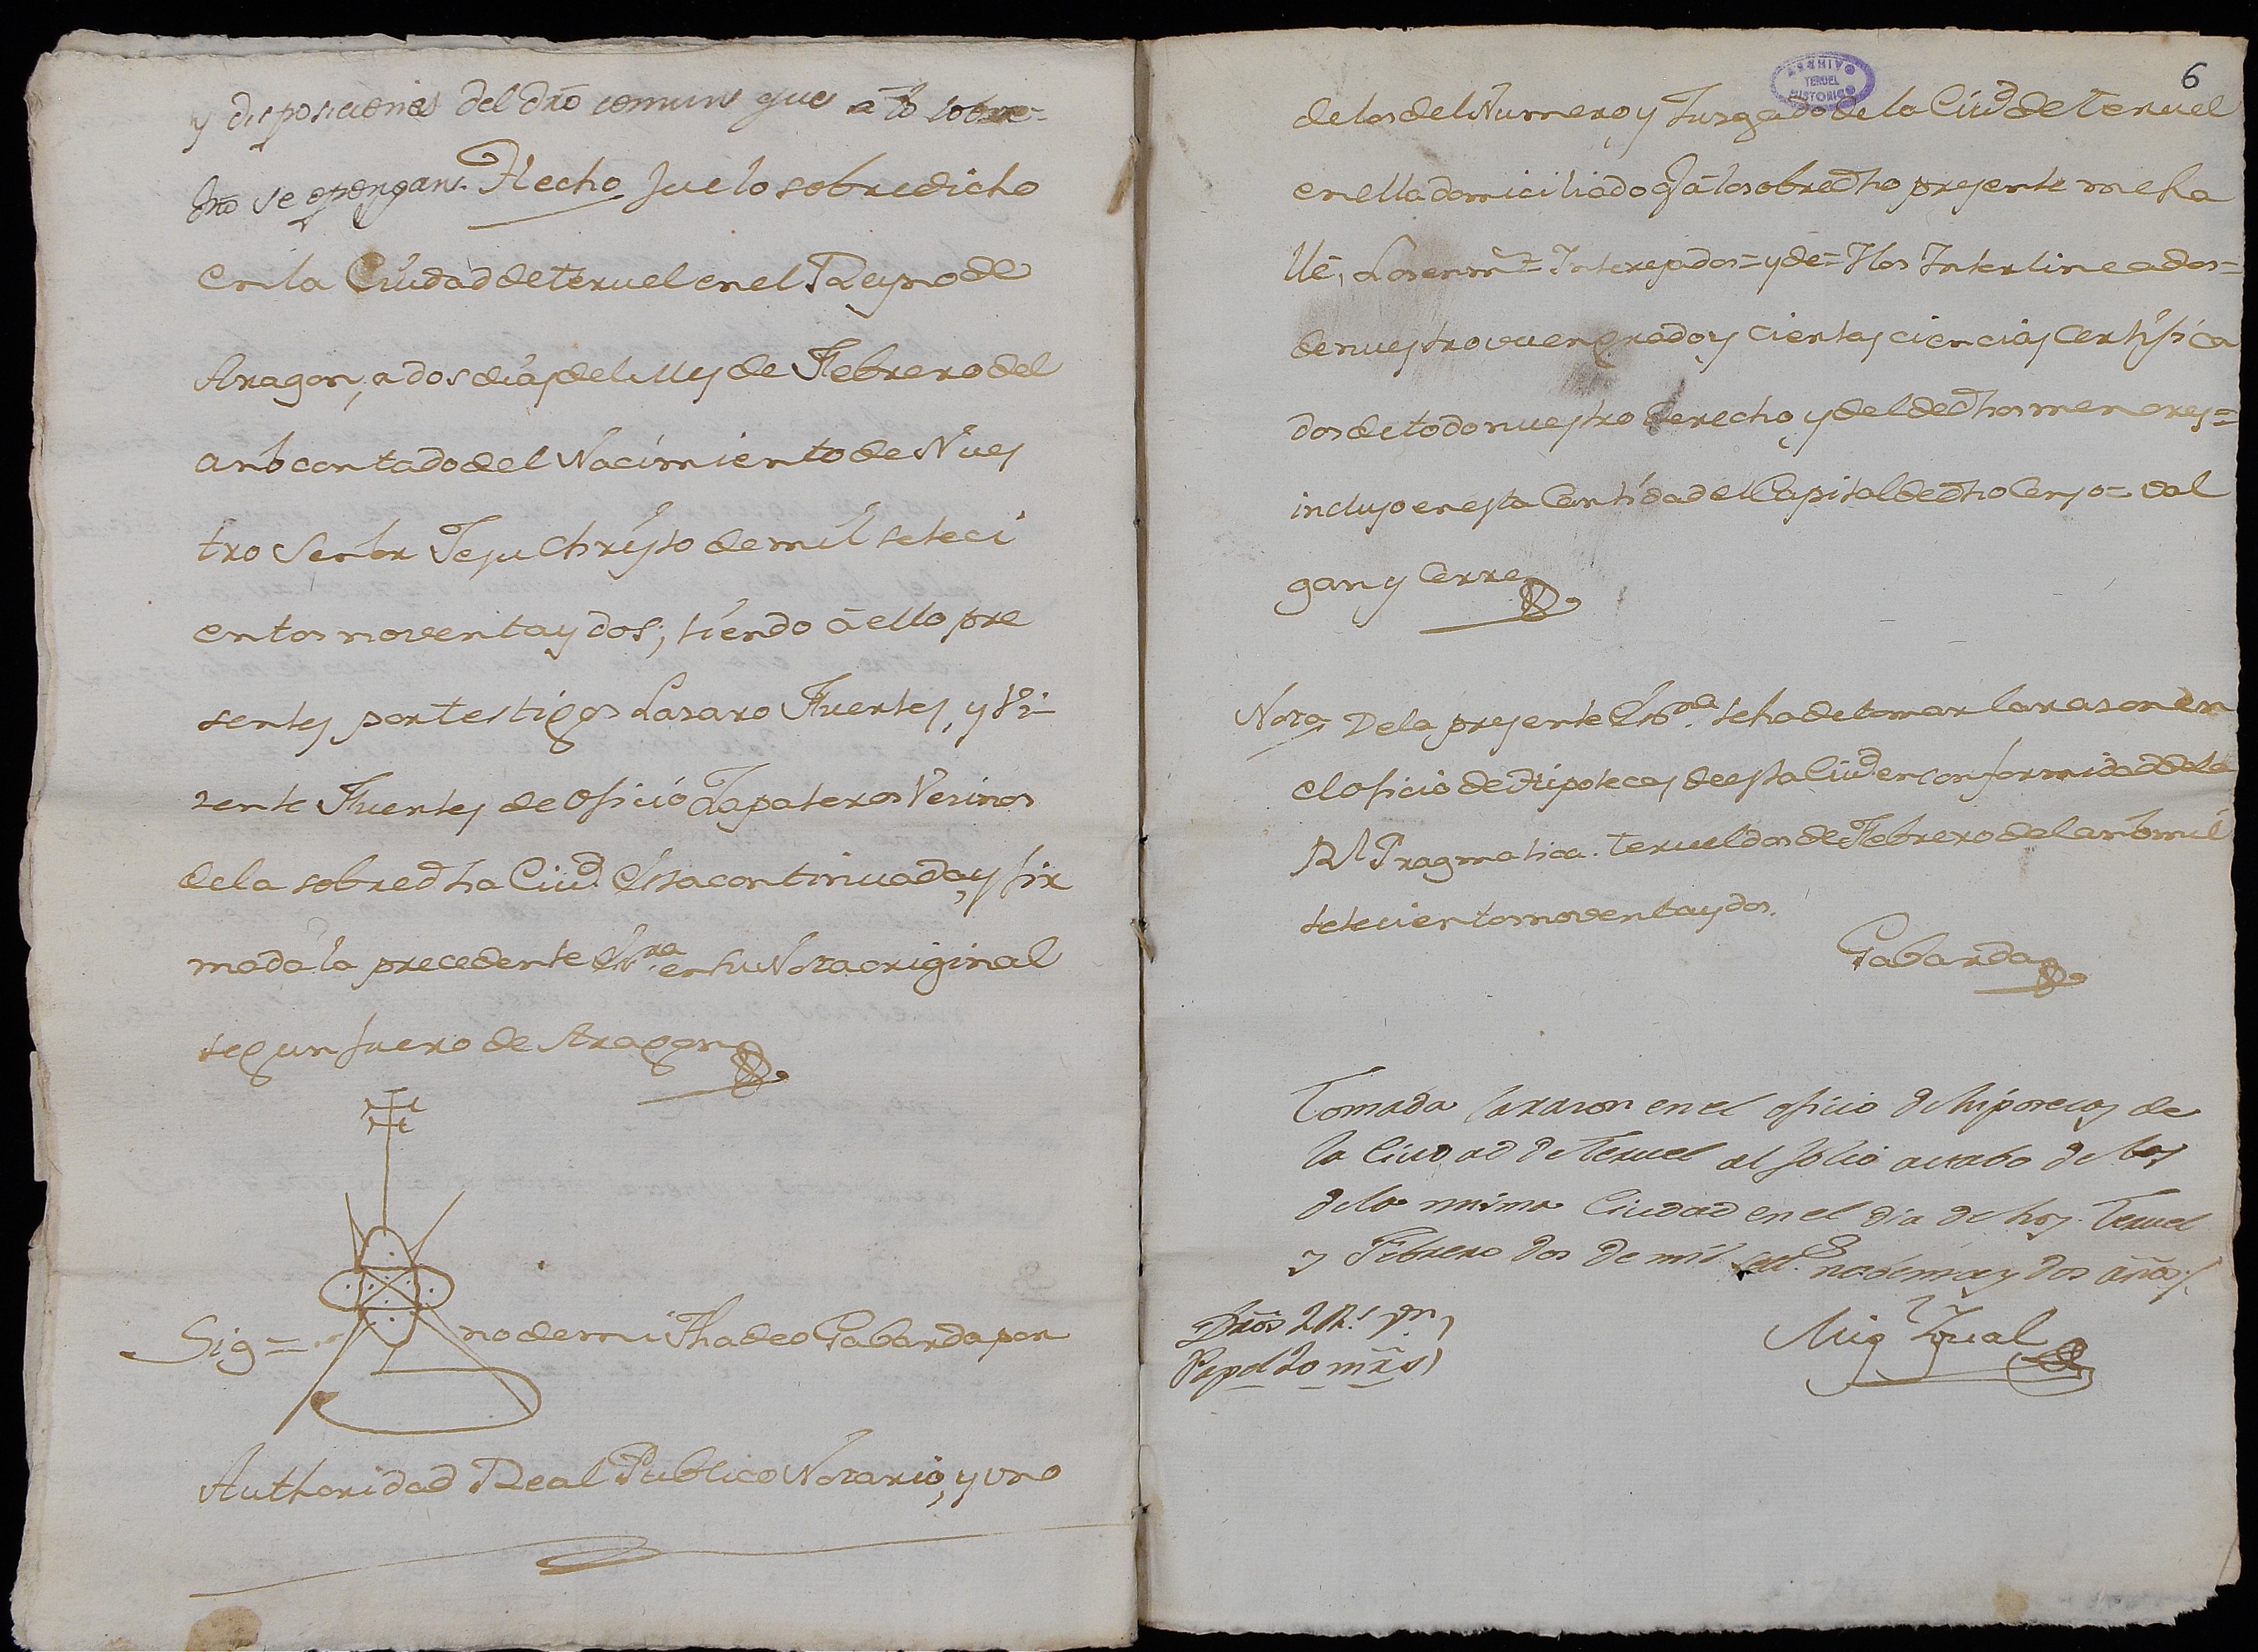 y disposiciones del dr̃o comun que a lo sobre-
dr̃o se opongan. Hecho fue lo sobredicho
en la Ciudad de teruel en el Reyno de
Aragon, a dos dias del Mes de Febrero del
año contado del Nacimiento de Nues
tro Señor Jesu Christo de mil seteci
entos noventa y dos; siendo à ello pre
sentes por testigos Lazaro Fuertes, y Vi-
zente Fuertes de oficio Zapateros Vecinos
de la sobredha Ciud. Esta continuada, y fir
mada la precedente Esra. en su Nota original
segun fuero de Aragon
Sig= no de mi Thadeo Gabarda por
Authoridad Real Publico Notario, y uno
6
ARCHIVO
TERUEL
HISTORICO
de los del Numero y Juzgado de la Ciud. de Teruel
en ella domiciliado q̃ à lo sobredho presente me ha
llè, Los enm.= y de= Y los Interlineados=
de nuestro buen grado y ciertas ciencias Certifica
dos de todo nuestro derecho, y del de dhos menores=
incluso en esta Cantidad el Capital de dho Censo= val
gan y Cerre
Nota De la presente Esra. se ha de tomar la razon en
el oficio de Hipotecas de esta Ciud. en conformidad de la
Rl Pragmatica. Teruel dos de Febrero del año mil
setecientos noventa y dos.
Gabarda
Tomada la razon en el oficio de hipotecas de
la Ciudad de Teruel al folio octabo de los
de la misma Ciudad en el dia de hoy. Teruel
y Febrero dos de mil set.s nobenta y dos años
Drõs 2 Rs. vn,
Papel 20 mr̃s,
Mig